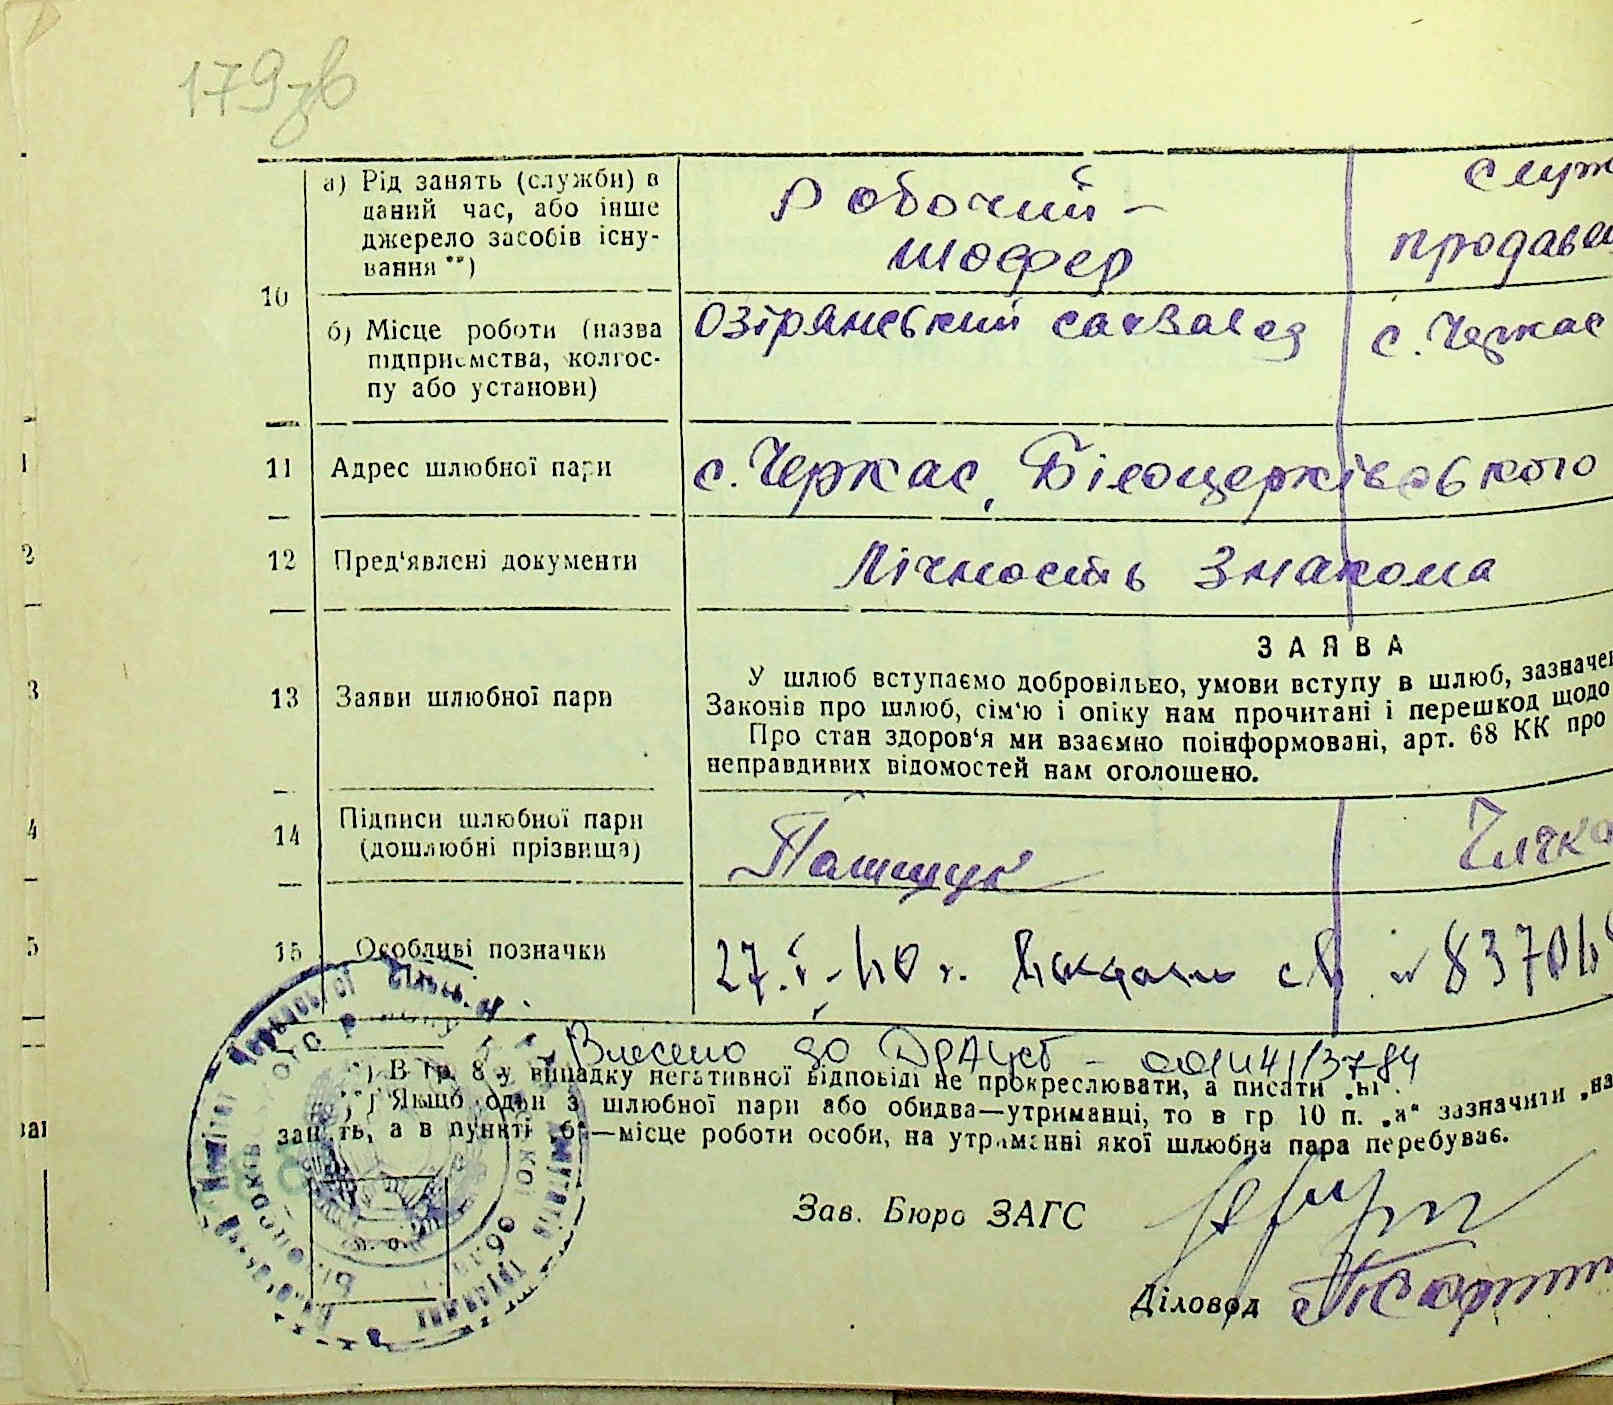 179зв
а) Рід занять (служби) в
даний час, або інше
джерело засобів існу-
вання **)
Робочий -
шофер
служ
продавец
10
б) Місце роботи (назва
підприємства, колгос-
пу або установи)
Озірянський сахзавод
с. Черкас
11 Адрес шлюбної пари
с. Черкас, Білоцерківського
12 Пред'явлені документи
Лічность знакома
13 Заяви шлюбної пари
ЗАЯВА
У шлюб вступаємо добровільно, умови вступу в шлюб, зазначен
Законів про шлюб, сім'ю і опіку нам прочитані і перешкод щодо
Про стан здоров'я ми взаємно поінформовані, арт. 68 КК про
неправдивих відомостей нам оголошено.
14 Підписи шлюбної пари
(дошлюбні прізвища)
15 Особливі позначки
27.V-40 г.
Внесено до ДРАЦСГ - 00141413784
*) В гр. 8 у випадку негативної відповіді не прокреслювати, а писати „ні“.
**) Якщо один з шлюбної пари або обидва—утриманці, то в гр 10 п. „а“ зазначити „на
занять, а в пункті „б“—місце роботи особи, на утриманні якої шлюбна пара перебуває.
Зав. Бюро ЗАГС
Діловод